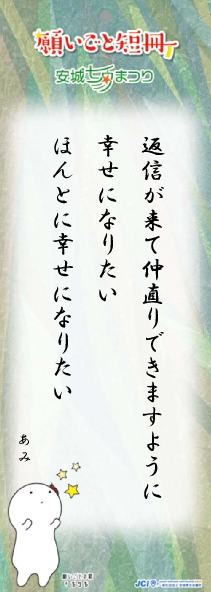 願いごと短冊
安城七夕まつり
返信が来て仲直りできますように
幸せになりたい
ほんとに幸せになりたい
あみ
JCI